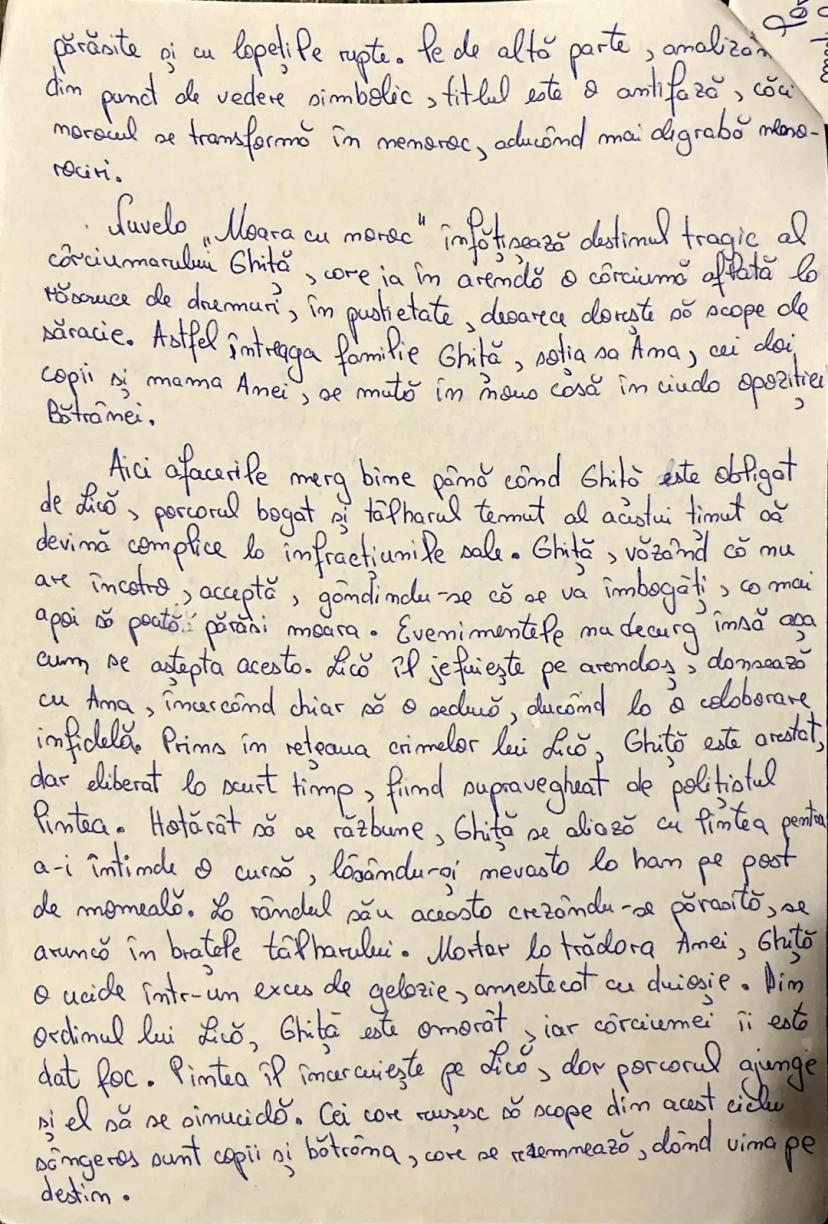 părăsite și cu lopețile rupte. Pe de altă parte, analizân
din punct de vedere simbolic, titlul este o antifază, căci
norocul se transformă în nenoroc, aducând mai digrabă neno-
rociri.
Nuvela „Moara cu noroc" înfățisează destinul tragic al
cârciumarului Ghiță, care ia în arendă o cârciumă aflată la
răscruce de drumuri, în pustietate, deoarece dorește să scape de
săracie. Astfel întreaga familie Ghiță, soția sa Ana, cei doi
copii și mama Anei, se mută în noua casă în ciuda opoziției
Bătrânei.
Aici afacerile merg bine până când Ghiță este obligat
de Lică, porcarul bogat și tâlharul temut al acestui ținut să
devină complice la infracțiunile sale. Ghiță, văzând că nu
are încotro, acceptă, gândindu-se că se va îmbogăți, ca mai
apoi să poată părăsi moara. Evenimentele nu decurg însă așa
cum se aștepta acesta. Lică îl jefuiește pe arendaș, dansează
cu Ana, încercând chiar să o seducă, ducând la o colaborare
infidelă. Prins în rețeaua crimelor lui Lică, Ghiță este arestat,
dar eliberat la scurt timp, fiind supravegheat de polițistul
Pintea. Hotărât să se răzbune, Ghiță se aliază cu Pintea pentru
a-i întinde o cursă, lăsându-și nevasta la han pe post
de momeală. La rândul său aceasta crezându-se părasită, se
aruncă în brațele tâlharului. Martor la trădara Anei, Ghiță
o ucide într-un exces de gelozie, amestecat cu duioșie. Din
ordinul lui Lică, Ghiță este omorât, iar cârciumei îi este
dat foc. Pintea îl încercuiește pe Lică, dar porcarul ajunge
și el să se sinucidă. Cei care reușesc să scape din acest ciclu
sângeros sunt copii și bătrâna, care se resemnează, dând vina pe
destin.